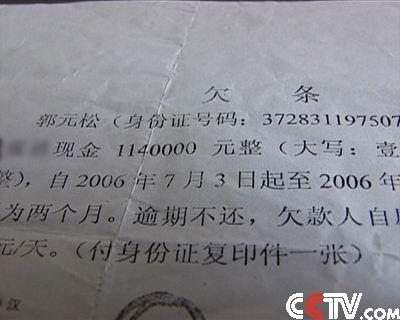 欠 条
郭元松（身份证号码：372831197507
现金 1140000 元整（大写：壹
整），自 2006 年 7 月 3 日起至 2006 年
为两个月。逾期不还，欠款人自
元/天。（付身份证复印件一张）
汉
CCTV.com